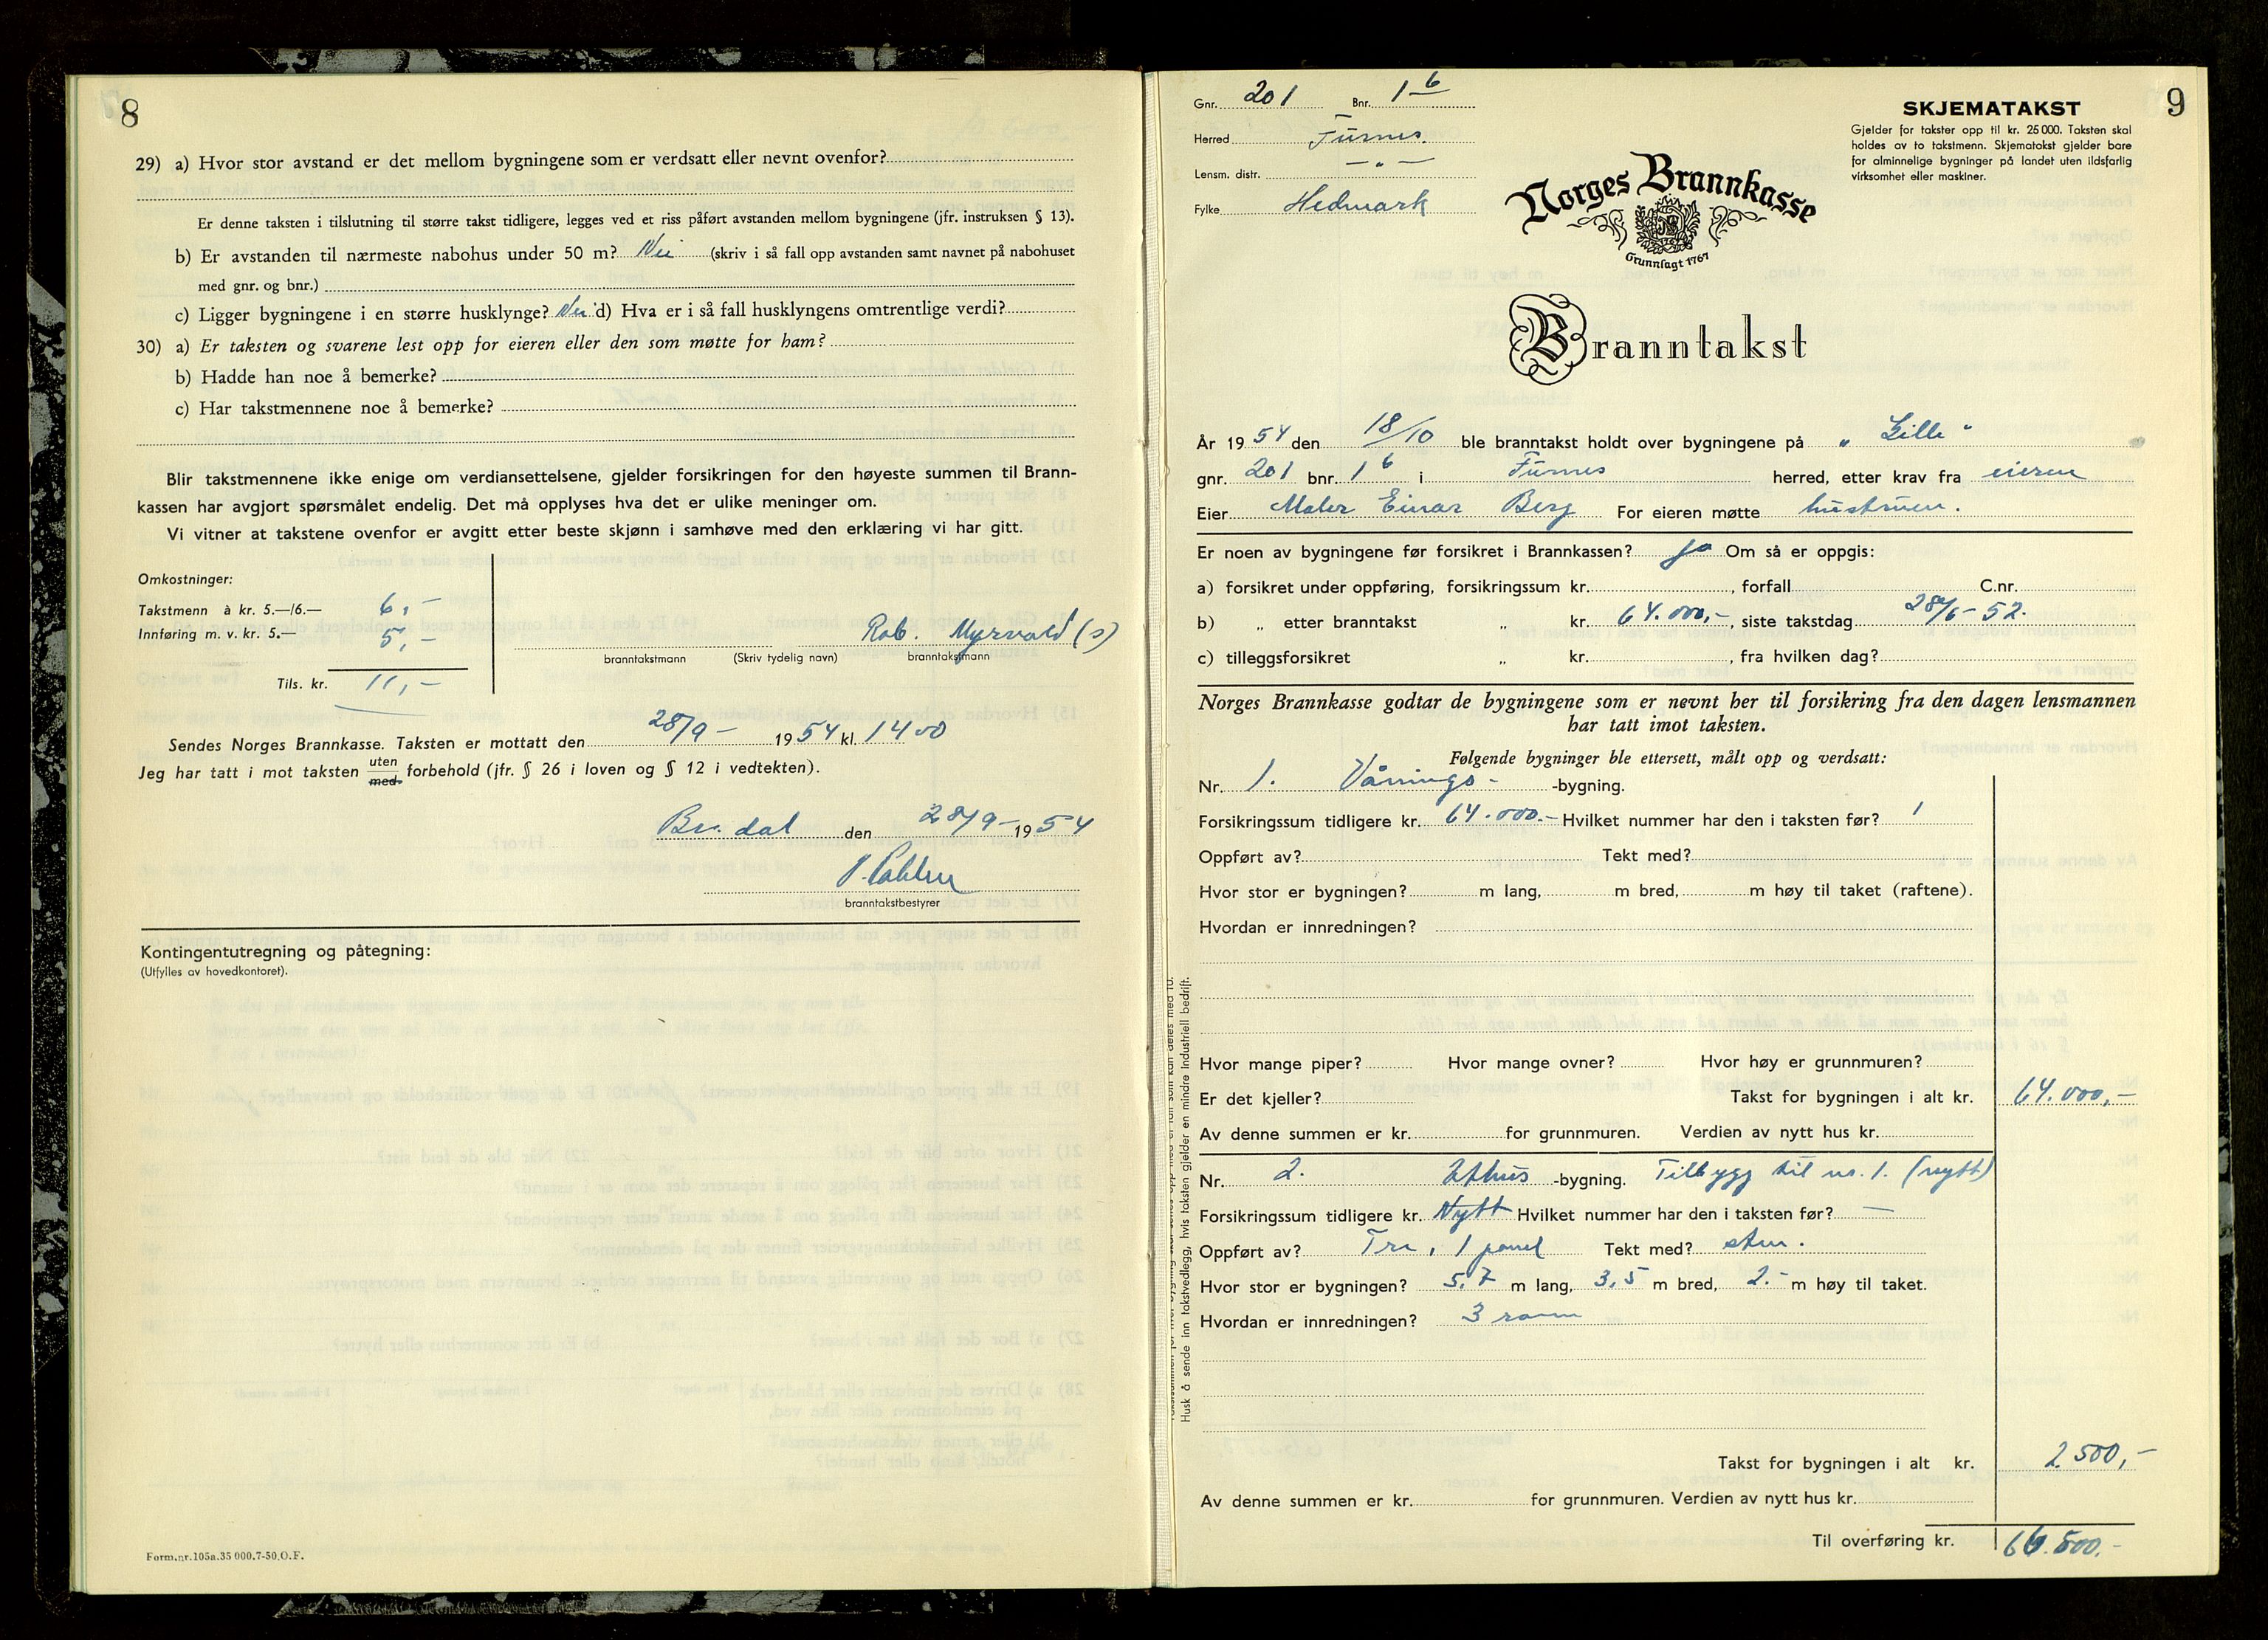 8
29) a) Hvor stor avstand er det mellom bygningene som er verdsatt eller nevnt ovenfor?
Er denne taksten i tilslutning til større takst tidligere, legges ved et riss påført avstanden mellom bygningene (jfr. instruksen § 13).
b) Er avstanden til nærmeste nabohus under 50 m? Nei (skriv i så fall opp avstanden samt navnet på nabohuset
med gnr. og bnr.)
c) Ligger bygningene i en større husklynge? Nei d) Hva er i så fall husklyngens omtrentlige verdi?
30) a) Er taksten og svarene lest opp for eieren eller den som møtte for ham?
b) Hadde han noe å bemerke?
c) Har takstmennene noe å bemerke?
Blir takstmennene ikke enige om verdiansettelsene, gjelder forsikringen for den høyeste summen til Brann-
kassen har avgjort spørsmålet endelig. Det må opplyses hva det er ulike meninger om.
Vi vitner at takstene ovenfor er avgitt etter beste skjønn i samhøve med den erklæring vi har gitt.
Omkostninger:
Takstmenn à kr. 5.—/6.— 6,-
Innføring m. v. kr. 5.— 5,-
Tils. kr. 11,-
Rob. Myrvold (s)
branntakstmann (Skriv tydelig navn) branntakstmann
Sendes Norges Brannkasse. Taksten er mottatt den 28/9- 1954 kl. 1400
Jeg har tatt i mot taksten uten med forbehold (jfr. § 26 i loven og § 12 i vedtekten).
Br.dal den 28/9- 1954
branntakstbestyrer
Kontingentutregning og påtegning:
(Utfylles av hovedkontoret).
Form.nr.105a.35 000.7-50.O.F.
9
Gnr. 201 Bnr. 1 6
Herred Furnes.
Lensm. distr. — " —
Fylke Hedmark
SKJEMATAKST
Gjelder for takster opp til kr. 25 000. Taksten skal
holdes av to takstmenn. Skjematakst gjelder bare
for alminnelige bygninger på landet uten ildsfarlig
virksomhet eller maskiner.
Norges Brannkasse
Grunnlagt 1767
Branntakst
År 1954 den 18/10 ble branntakst holdt over bygningene på " Lille "
gnr. 201 bnr. 1 6 i Furnes herred, etter krav fra eieren
Eier Maler Einar Berg For eieren møtte hustruen.
Er noen av bygningene før forsikret i Brannkassen? ja Om så er oppgis:
a) forsikret under oppføring, forsikringssum kr. , forfall C.nr.
b) „ etter branntakst „ kr. 64.000,- , siste takstdag 28/5- 52.
c) tilleggsforsikret „ kr. , fra hvilken dag?
Norges Brannkasse godtar de bygningene som er nevnt her til forsikring fra den dagen lensmannen
har tatt imot taksten.
Følgende bygninger ble ettersett, målt opp og verdsatt:
Nr. 1. Vånings- -bygning.
Forsikringssum tidligere kr. 64.000.- Hvilket nummer har den i taksten før? 1
Oppført av? Tekt med?
Hvor stor er bygningen? m lang, m bred, m høy til taket (raftene).
Hvordan er innredningen?
Hvor mange piper? Hvor mange ovner? Hvor høy er grunnmuren?
Er det kjeller? Takst for bygningen i alt kr. 64.000,-
Av denne summen er kr. for grunnmuren. Verdien av nytt hus kr.
Nr. 2. Uthus -bygning. Tilbygg til nr. 1. (nytt)
Forsikringssum tidligere kr. Nytt Hvilket nummer har den i taksten før? —
Oppført av? Tre, 1 panel Tekt med? sten.
Hvor stor er bygningen? 5,7 m lang, 3,5 m bred, 2.- m høy til taket.
Hvordan er innredningen? 3 rom
Takst for bygningen i alt kr. 2.500,-
Av denne summen er kr. for grunnmuren. Verdien av nytt hus kr.
Til overføring kr. 66.500.-
Husk å sende inn takstvedlegg, hvis taksten gjelder en mindre industriell bedrift.